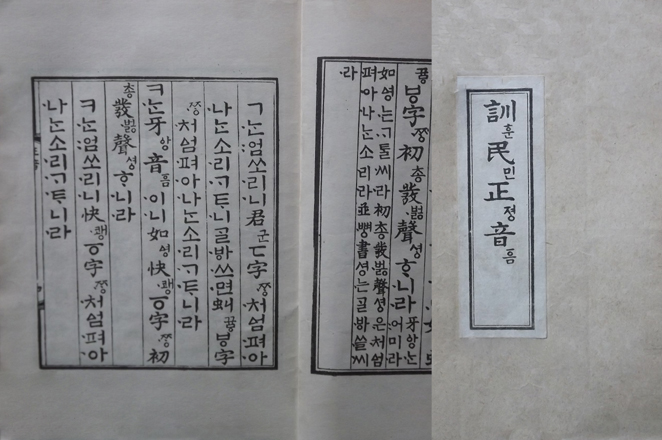 訓훈民민正졍音ᅙᅳᆷ
뀨ᇢㅸ字ᄍᆞᆼ初총發벓聲셩ᄒᆞ니라牙앙ᄂᆞᆫ어미라
如영는ᄀᆞᄐᆞᆯ씨라初총發벓聲셩은처ᅀᅥᆷ
펴아나ᄂᆞᆫ소리라並뼝書셩는ᄀᆞᆯᄫᅡ쓸씨
라
ㄱᄂᆞᆫ엄쏘리니君군ㄷ字ᄍᆞᆼ처ᅀᅥᆷ펴아
나ᄂᆞᆫ소리ᄀᆞᄐᆞ니ᄀᆞᆯᄫᅡ쓰면虯뀨ᇢㅸ字
ᄍᆞᆼ처ᅀᅥᆷ펴아나ᄂᆞᆫ소리ᄀᆞᄐᆞ니라
ㅋᄂᆞᆫ牙앙音ᅙᅳᆷ이니如영快쾡ㆆ字ᄍᆞᆼ初
총發벓聲셩ᄒᆞ니라
ㅋᄂᆞᆫ엄쏘리니快쾡ㆆ字ᄍᆞᆼ처ᅀᅥᆷ펴아
나ᄂᆞᆫ소리ᄀᆞᄐᆞ니라